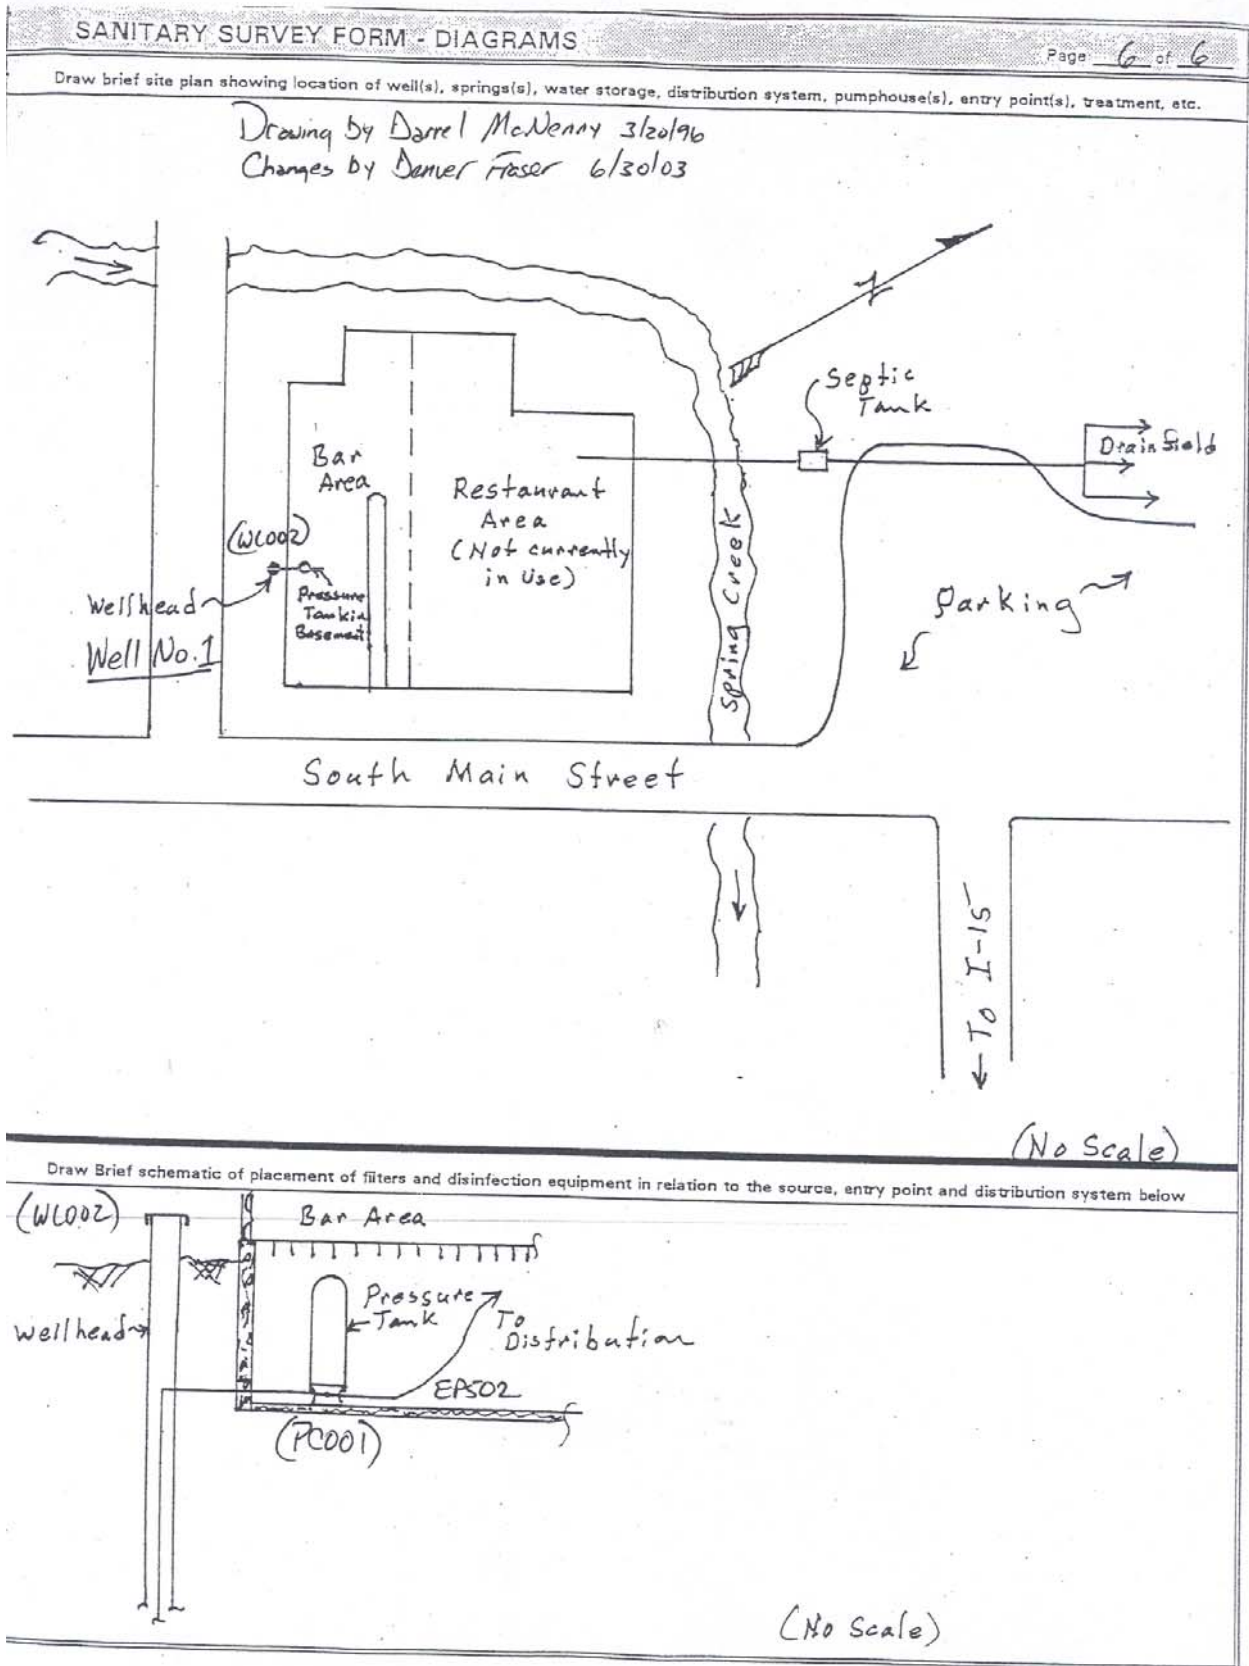 SANITARY SURVEY FORM - DIAGRAMS
Page 6 of 6
Draw brief site plan showing location of well(s), springs(s), water storage, distribution system, pumphouse(s), entry point(s), treatment, etc.
Drawing by Darrel McNenny 3/20/96
Changes by Denver Fraser 6/30/03
Septic
Tank
Drainfield
Bar
Area
Restaurant
Area
(Not currently
in Use)
(WL002)
Wellhead
Well No.1
Pressure
Tank in
Basement
Spring Creek
Parking
South Main Street
To I-15
(No Scale)
Draw Brief schematic of placement of filters and disinfection equipment in relation to the source, entry point and distribution system below
(WL002)
Bar Area
Wellhead
Pressure
Tank
To
Distribution
EP502
(PC001)
(No Scale)